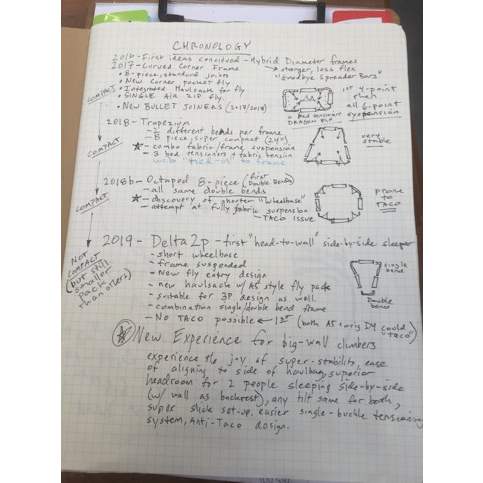 CHRONOLOGY
2016 - First ideas conceived - Hybrid Diameter frames
2017 - Curved Corner Frame → stronger, less flex
• 8-piece, standard joiners "Goodbye Spreader Bars"
• New corner pocket fly
• Integrated Haulsack for fly
• SINGLE A/2 ZIP fly.
• NEW BULLET JOINERS (2017/2018)
COMPACT
1st 4-point
all 6-point
suspension
2018 - Trapezium
- 2 different bends per frame
- 8 piece, super compact (24")
- combo fabric/frame suspension
- 3 bed tensioners + fabric tension
very
stable
COMPACT
2018b - Octopod 8-piece (first Double Bends)
- all same double bends
- discovery of shorter "Wheelbase"
- attempt at fully fabric suspension
- TACO ISSUE
prone
to
TACO
COMPACT
2019 - Delta2p - first "head-to-wall" side-by-side sleeper
- short wheelbase
- frame suspended
- New fly entry design
- new haulsack w/ A5 style fly pack
- suitable for 3P design as well.
- combination single/double bend frame
- No TACO possible ← 1st (both A5 + orig D4 could "taco")
NOT
COMPACT
(but still
smaller
pack
than others)
single
bend
Double
bend
New Experience for big-wall climbers
experience the joy of super-stability, ease
of aligning to side of haulbag, superior
headroom for 2 people sleeping side-by-side
(w/ wall as backrest), any tilt same for both,
super slick set-up, easier single-buckle tensioning
system, Anti-Taco design.